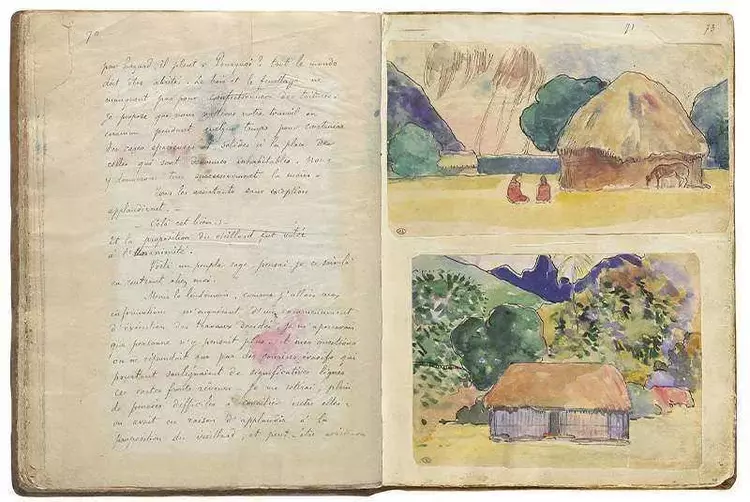 70
par hasard, il pleut ? Pourquoi ? tout le monde
doit être abrité. Le bois et le feuillage ne
manquent pas pour confectionner des toitures.
Je propose que nous mettions notre travail en
commun pendant quelque temps pour construire
des cases spacieuses et solides à la place de
celles qui sont devenues inhabitables. Nous
y donnerons tous successivement la main. -
Tous les assistants sans exception
applaudirent. -
- Cela est bien ! -
Et la proposition du vieillard fut votée
à l'unanimité.
Voilà un peuple sage, pensai je ce soir là
en rentrant chez moi.
Mais le lendemain, comme j'allais aux
informations d'un commencement
d'exécution des travaux décidés, je m'apercevais
que personne n'y pensait plus. à mes questions
on ne répondait que par des sourires évasifs qui
pourtant soulignaient de significatives lignes
ces vastes fronts rêveurs. Je me retirai, plein
de pensées difficiles à concilier entre elles.
on avait eu raison d'applaudir à la
proposition du vieillard, et peut-être
71
73